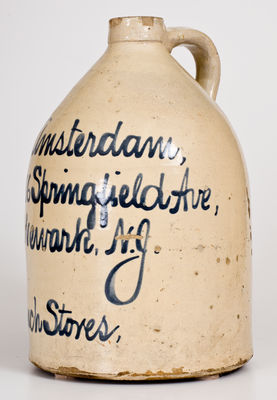 Amsterdam,
Springfield Ave,
Newark, N.J.
Stores,